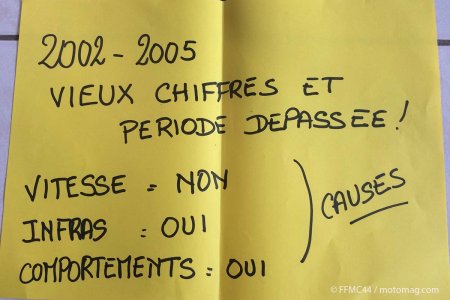 2002 - 2005
VIEUX CHIFFRES ET
PERIODE DEPASSEE !
VITESSE = NON
INFRAS = OUI
COMPORTEMENTS = OUI
CAUSES
© FFMC44 / motomag.com